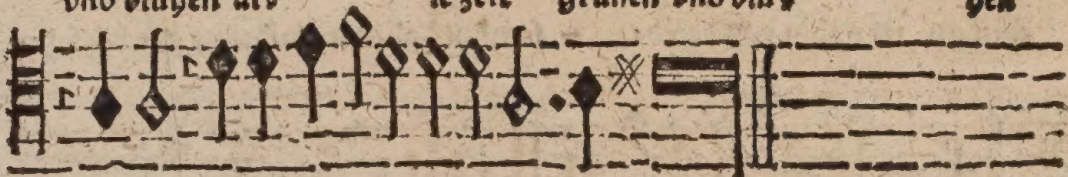 vnd blühen al⸗ le zeit grünen vnd blü⸗ hen